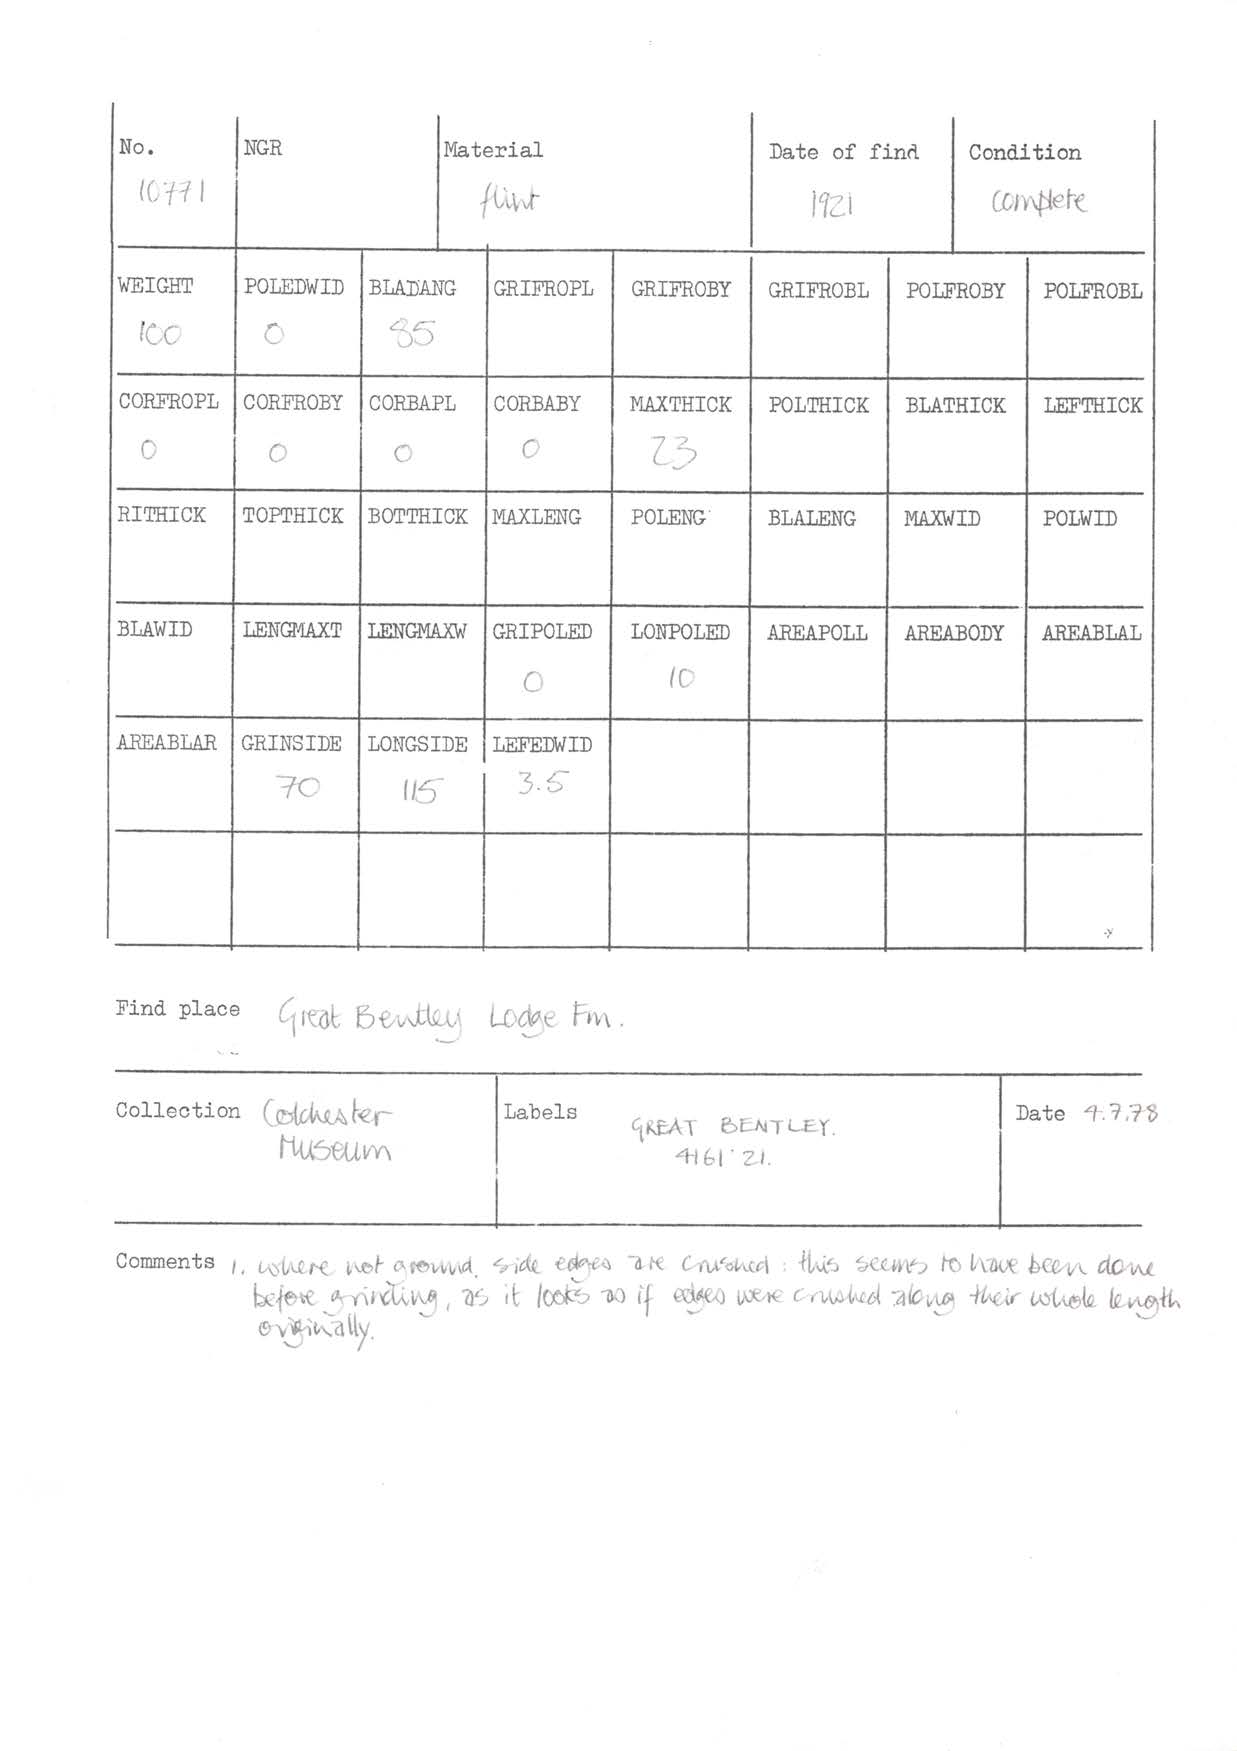 No. NGR Material Date of find Condition
10771 flint 1921 complete
WEIGHT POLEDWID BLADANG GRIFROPL GRIFROBY GRIFROBL POLFROBY POLFROBL
100 0 85
CORFROPL CORFROBY CORBAPL CORBABY MAXTHICK POLTHICK BLATHICK LEFTHICK
0 0 0 0 23
RITHICK TOPTHICK BOTTHICK MAXLENG POLENG BLALENG MAXWID POLWID
BLAWID LENGMAXT LENGMAXW GRIPOLED LONPOLED AREAPOLL AREABODY AREABLAL
0 10
AREABLAR GRINSIDE LONGSIDE LEFEDWID
70 115 3.5
Find place Great Bentley Lodge Fm.
Collection Colchester Museum
Labels GREAT BENTLEY.
4161·21.
Date 4.7.78
Comments 1. where not ground, side edges are crushed : this seems to have been done
before grinding, as it looks as if edges were crushed along their whole length
originally.